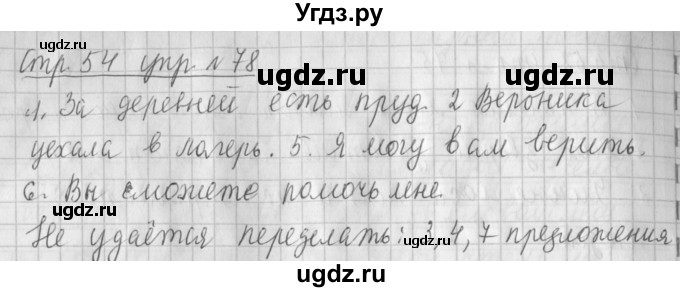 Угдз.ру
Стр. 54 упр. № 78
ugdz.ru ugdz.ru
1. За деревней есть пруд. 2 Вероника
уехала в лагерь. 5. Я могу вам верить.
ugdz.ru ugdz.ru
6. Вы сможете помочь мне.
ugdz.ru
Не удаётся переделать: 3, 4, 7 предложения
ugdz.ru
ugdz.ru